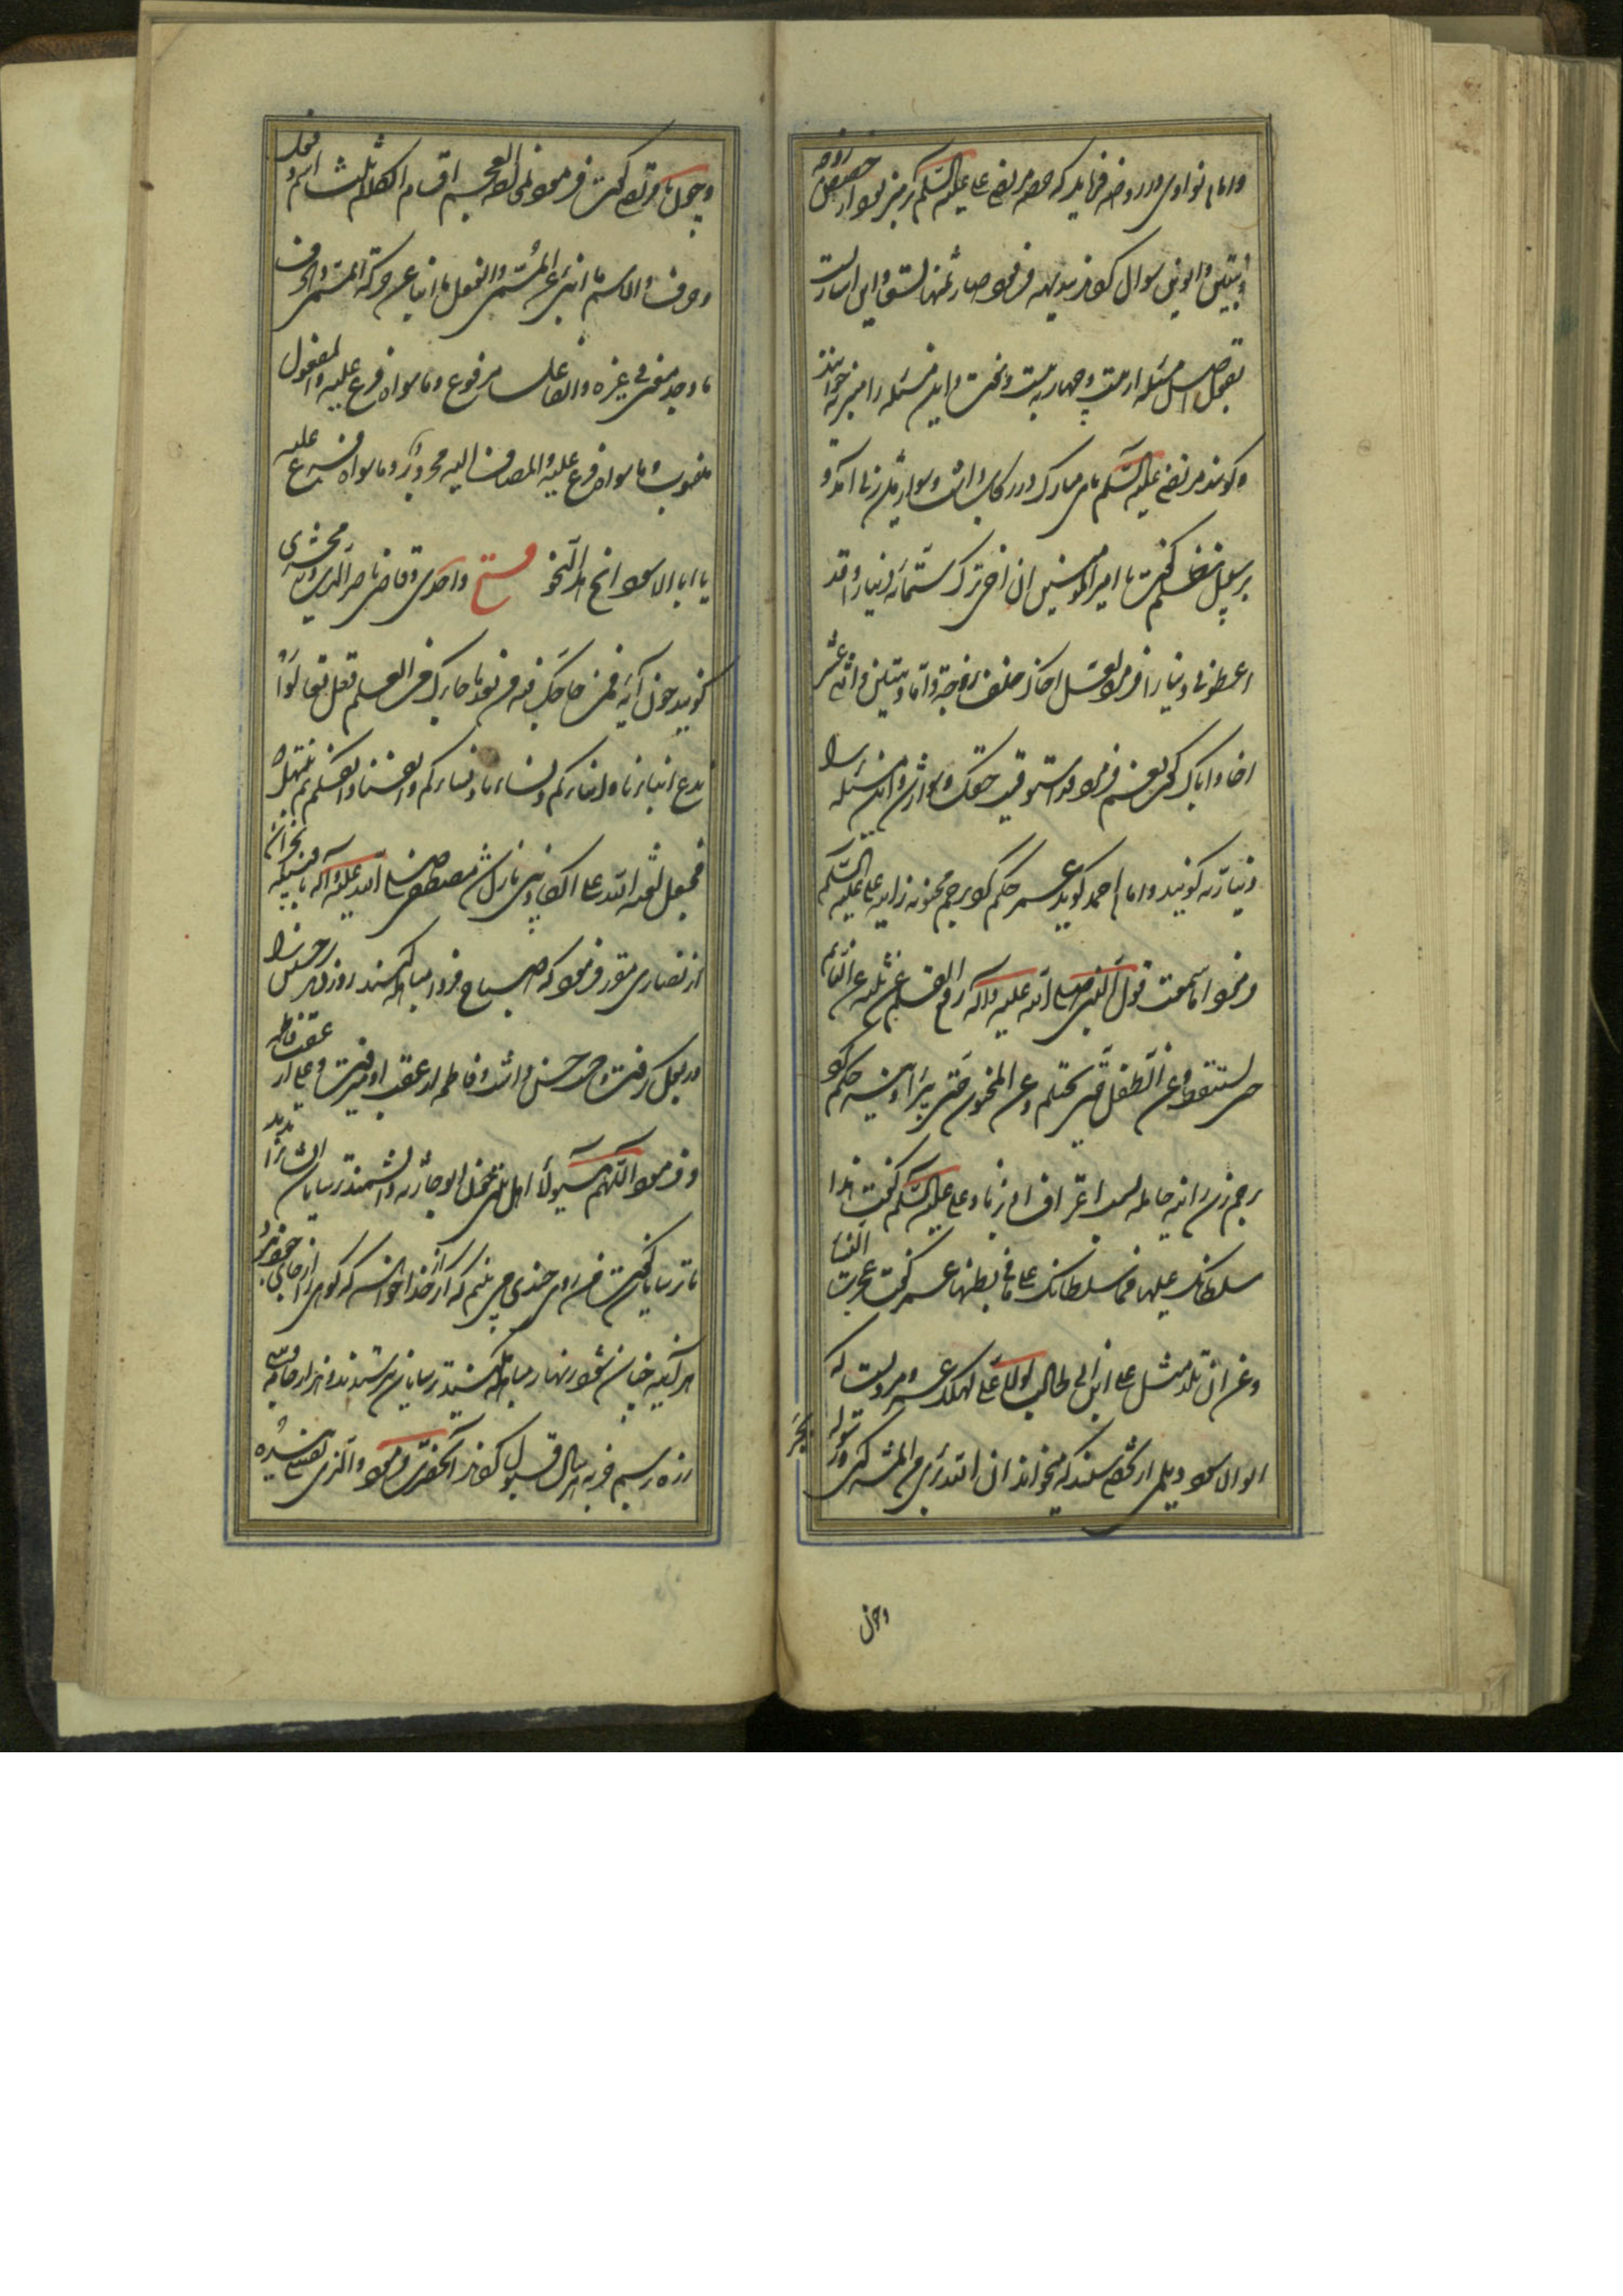 و امام نواوی در روضه فرماید که حضرت مرتضی علی علیه السلم بر منبر بود از حصه زوجه
و بنتین و ابوین سوال کردند بدیهه فرمود صار ثمنها تسعا و این اشارت
بعول اصل مسئله از بیست و چهار به بیست و هفت و این مسئله را منبریه خوانند
و گویند مرتضی علیه السلم پای مبارک در رکاب داشت و سوار میشد زنی آمد و
گفت یا امیر المومنین ان اخی ترک ستمائه دینار و قد
اعطونی دینارا فرمود لعل اخاک خلف زوجة و اما و بنتین و اثنی عشر
اخا و ایاک گفت نعم فرمود قد استوفیت حقک و سوار شد و این مسئله را
دیناریه گویند و امام احمد گوید عمر حکم کرد برجم مجنونه زانیه علی علیه السلم
فرمود اما سمعت قول النبی صلی الله علیه و آله رفع القلم عن ثلثه عن النائم
حتی یستیقظ و عن الطفل حتی یحتلم و عن المجنون حتی یبرأ و حکم کرد
برجم زن زانیه حامله بسبب اعتراف او بزنا و علی علیه السلم گفت هذا
سلطانک علیها فما سلطانک علی ما فی بطنها عمر گفت عجزت النساء
و عن ان تلد مثل علی ابن ابی طالب لولا علی لهلک عمر و مرویست که
ابو الاسود دیلمی از شخصی شنید که میخواند ان الله بریء من المشرکین و رسوله بجر
و چون
و چون با مرتضی گفت فرمود لمخالطة العجم اقسام الکلام ثلث اسم و فعل
و حرف و الاسم ما انبأ عن المسمی و الفعل ما انبأ عن حرکة المسمی و الحرف
ما اوجد معنی فی غیره و الفاعل مرفوع و ما سواه فرع علیه و المفعول
منصوب و ما سواه فرع علیه و المضاف الیه مجرور و ما سواه فرع علیه
یا ابا الاسود انح هذا النحو فتح واحدی و قاضی ناصر الدین و زمخشری
گویند چون آیه فمن حاجک فیه من بعد ما جاءک من العلم فقل تعالوا
ندع ابناءنا و ابناءکم و نساءنا و نساءکم و انفسنا و انفسکم ثم نبتهل
فنجعل لعنة الله علی الکاذبین نازل شد مصطفی صلی الله علیه و آله با نجران
از نصاری مقرر فرمود که صباح فردا مباهله کنند روز دیگر حسین را
در بغل گرفت و دست حسن داشت و فاطمه در عقب او میرفت و علی از عقب فاطمه
و فرمود اللهم هؤلاء اهل بیتی ابو حارثه دانشمند ترسایان ایشانرا بدید
با ترسایان گفت من روی چندی می بینم که اگر از خدا خواهند که کوهی را از جای خود برد
هر آینه چنان شود زنهار مباهله مکنید ترسایان بترسیدند و هزار جامه و سی
زره برسم جزیه هر سال قبول کردند آنحضرت فرمود و الذی نفسی بیده